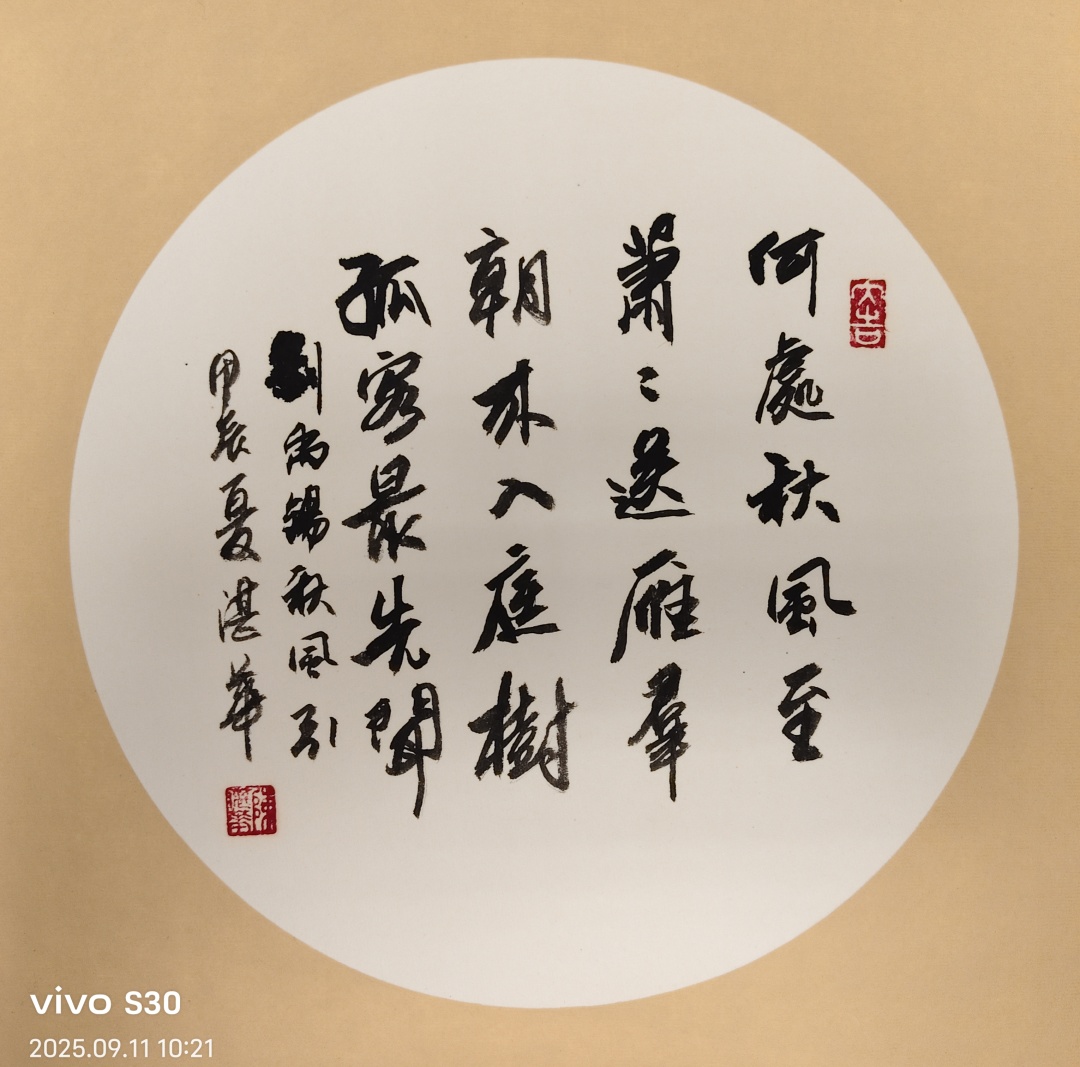 何處秋風至
蕭〻送雁羣
朝来入庭樹
孤客最先聞
劉禹錫秋風引
甲辰夏湛華
大吉
vivo S30
2025.09.11 10:21